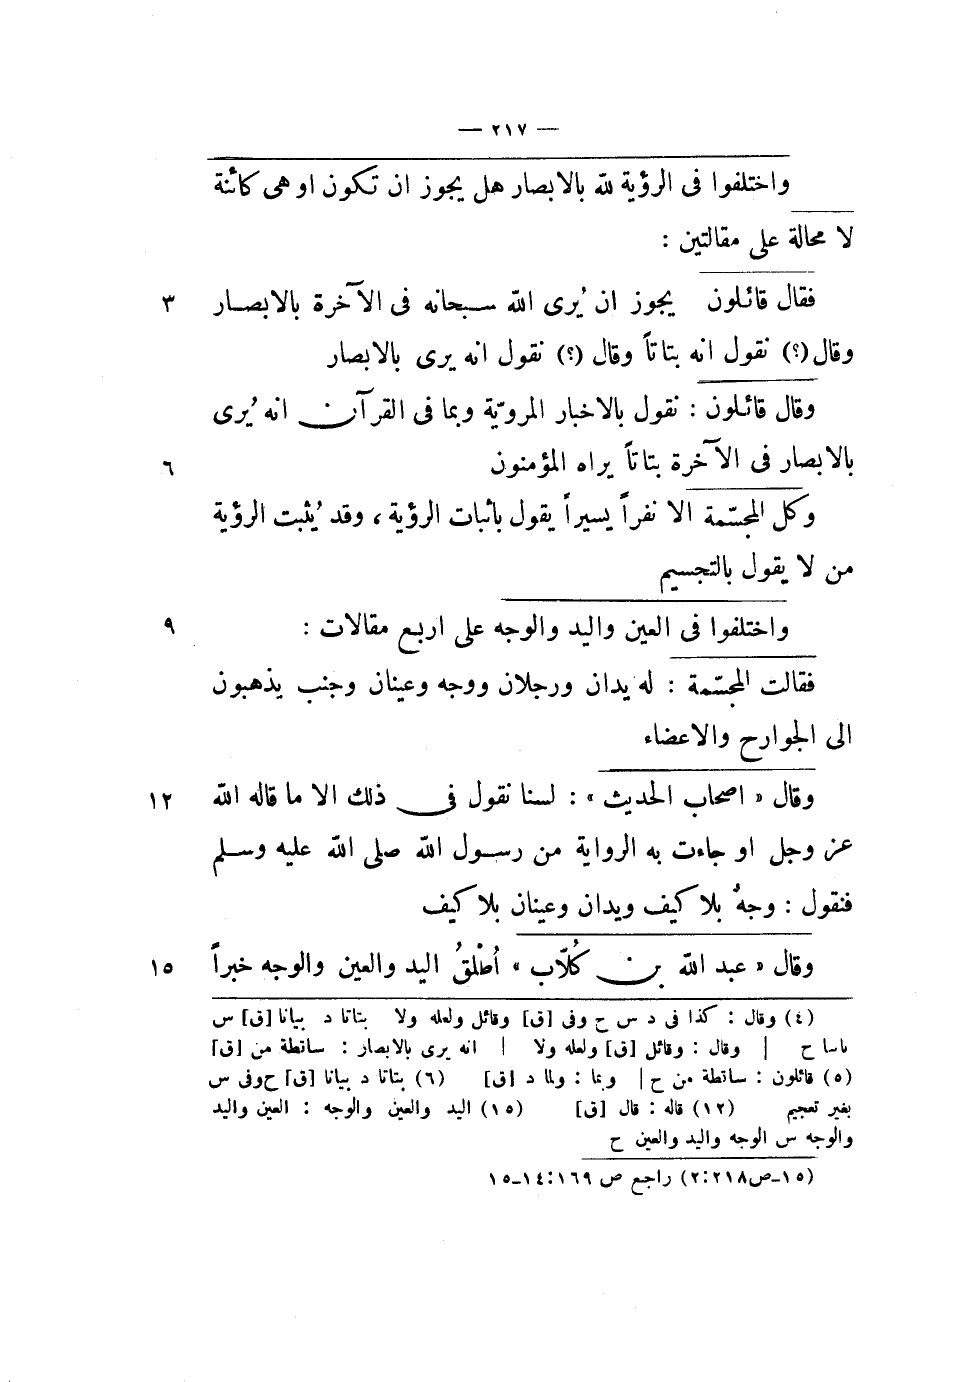 — ٢١٧ —
واختلفوا فى الرؤية لله بالابصار هل يجوز ان تكون او هى كائنة
لا محالة على مقالتين :
فقال قائلون يجوز ان يُرى الله سبحانه فى الآخرة بالابصار ٣
وقال (؟) نقول انه بتاتاً وقال (؟) نقول انه يرى بالابصار
وقال قائلون : نقول بالاخبار المرويّة وبما فى القرآن انه يُرى
بالابصار فى الآخرة بتاتاً يراه المؤمنون ٦
وكل المجسّمة الا نفراً يسيراً يقول باثبات الرؤية ، وقد يُثبت الرؤية
من لا يقول بالتجسيم
واختلفوا فى العين واليد والوجه على اربع مقالات : ٩
فقالت المجسّمة : له يدان ورجلان ووجه وعينان وجنب يذهبون
الى الجوارح والاعضاء
وقال « اصحاب الحديث » : لسنا نقول فى ذلك الا ما قاله الله ١٢
عز وجل او جاءت به الرواية من رسول الله صلى الله عليه وسلم
فنقول : وجهٌ بلا كيف ويدان وعينان بلا كيف
وقال « عبد الله بن كُلّاب » أُطْلقُ اليد والعين والوجه خبراً ١٥
(٤) وقال : كذا فى د س ح وفى [ق] وقائل ولعله ولا بتاتا د بيانا [ق] س
ح | وقال : وقائل [ق] ولعله ولا | انه يرى بالابصار : ساقطة من [ق]
(٥) قائلون : ساقطة من ح | وبما : ولما د [ق] (٦) بتاتا د بيانا [ق] ح وفى س
بغير تعجيم (١٢) قاله : قال [ق] (١٥) اليد والعين والوجه : العين واليد
والوجه س الوجه واليد والعين ح
(١٥-ص٢١٨:٢) راجع ص ١٦٩:١٤-١٥